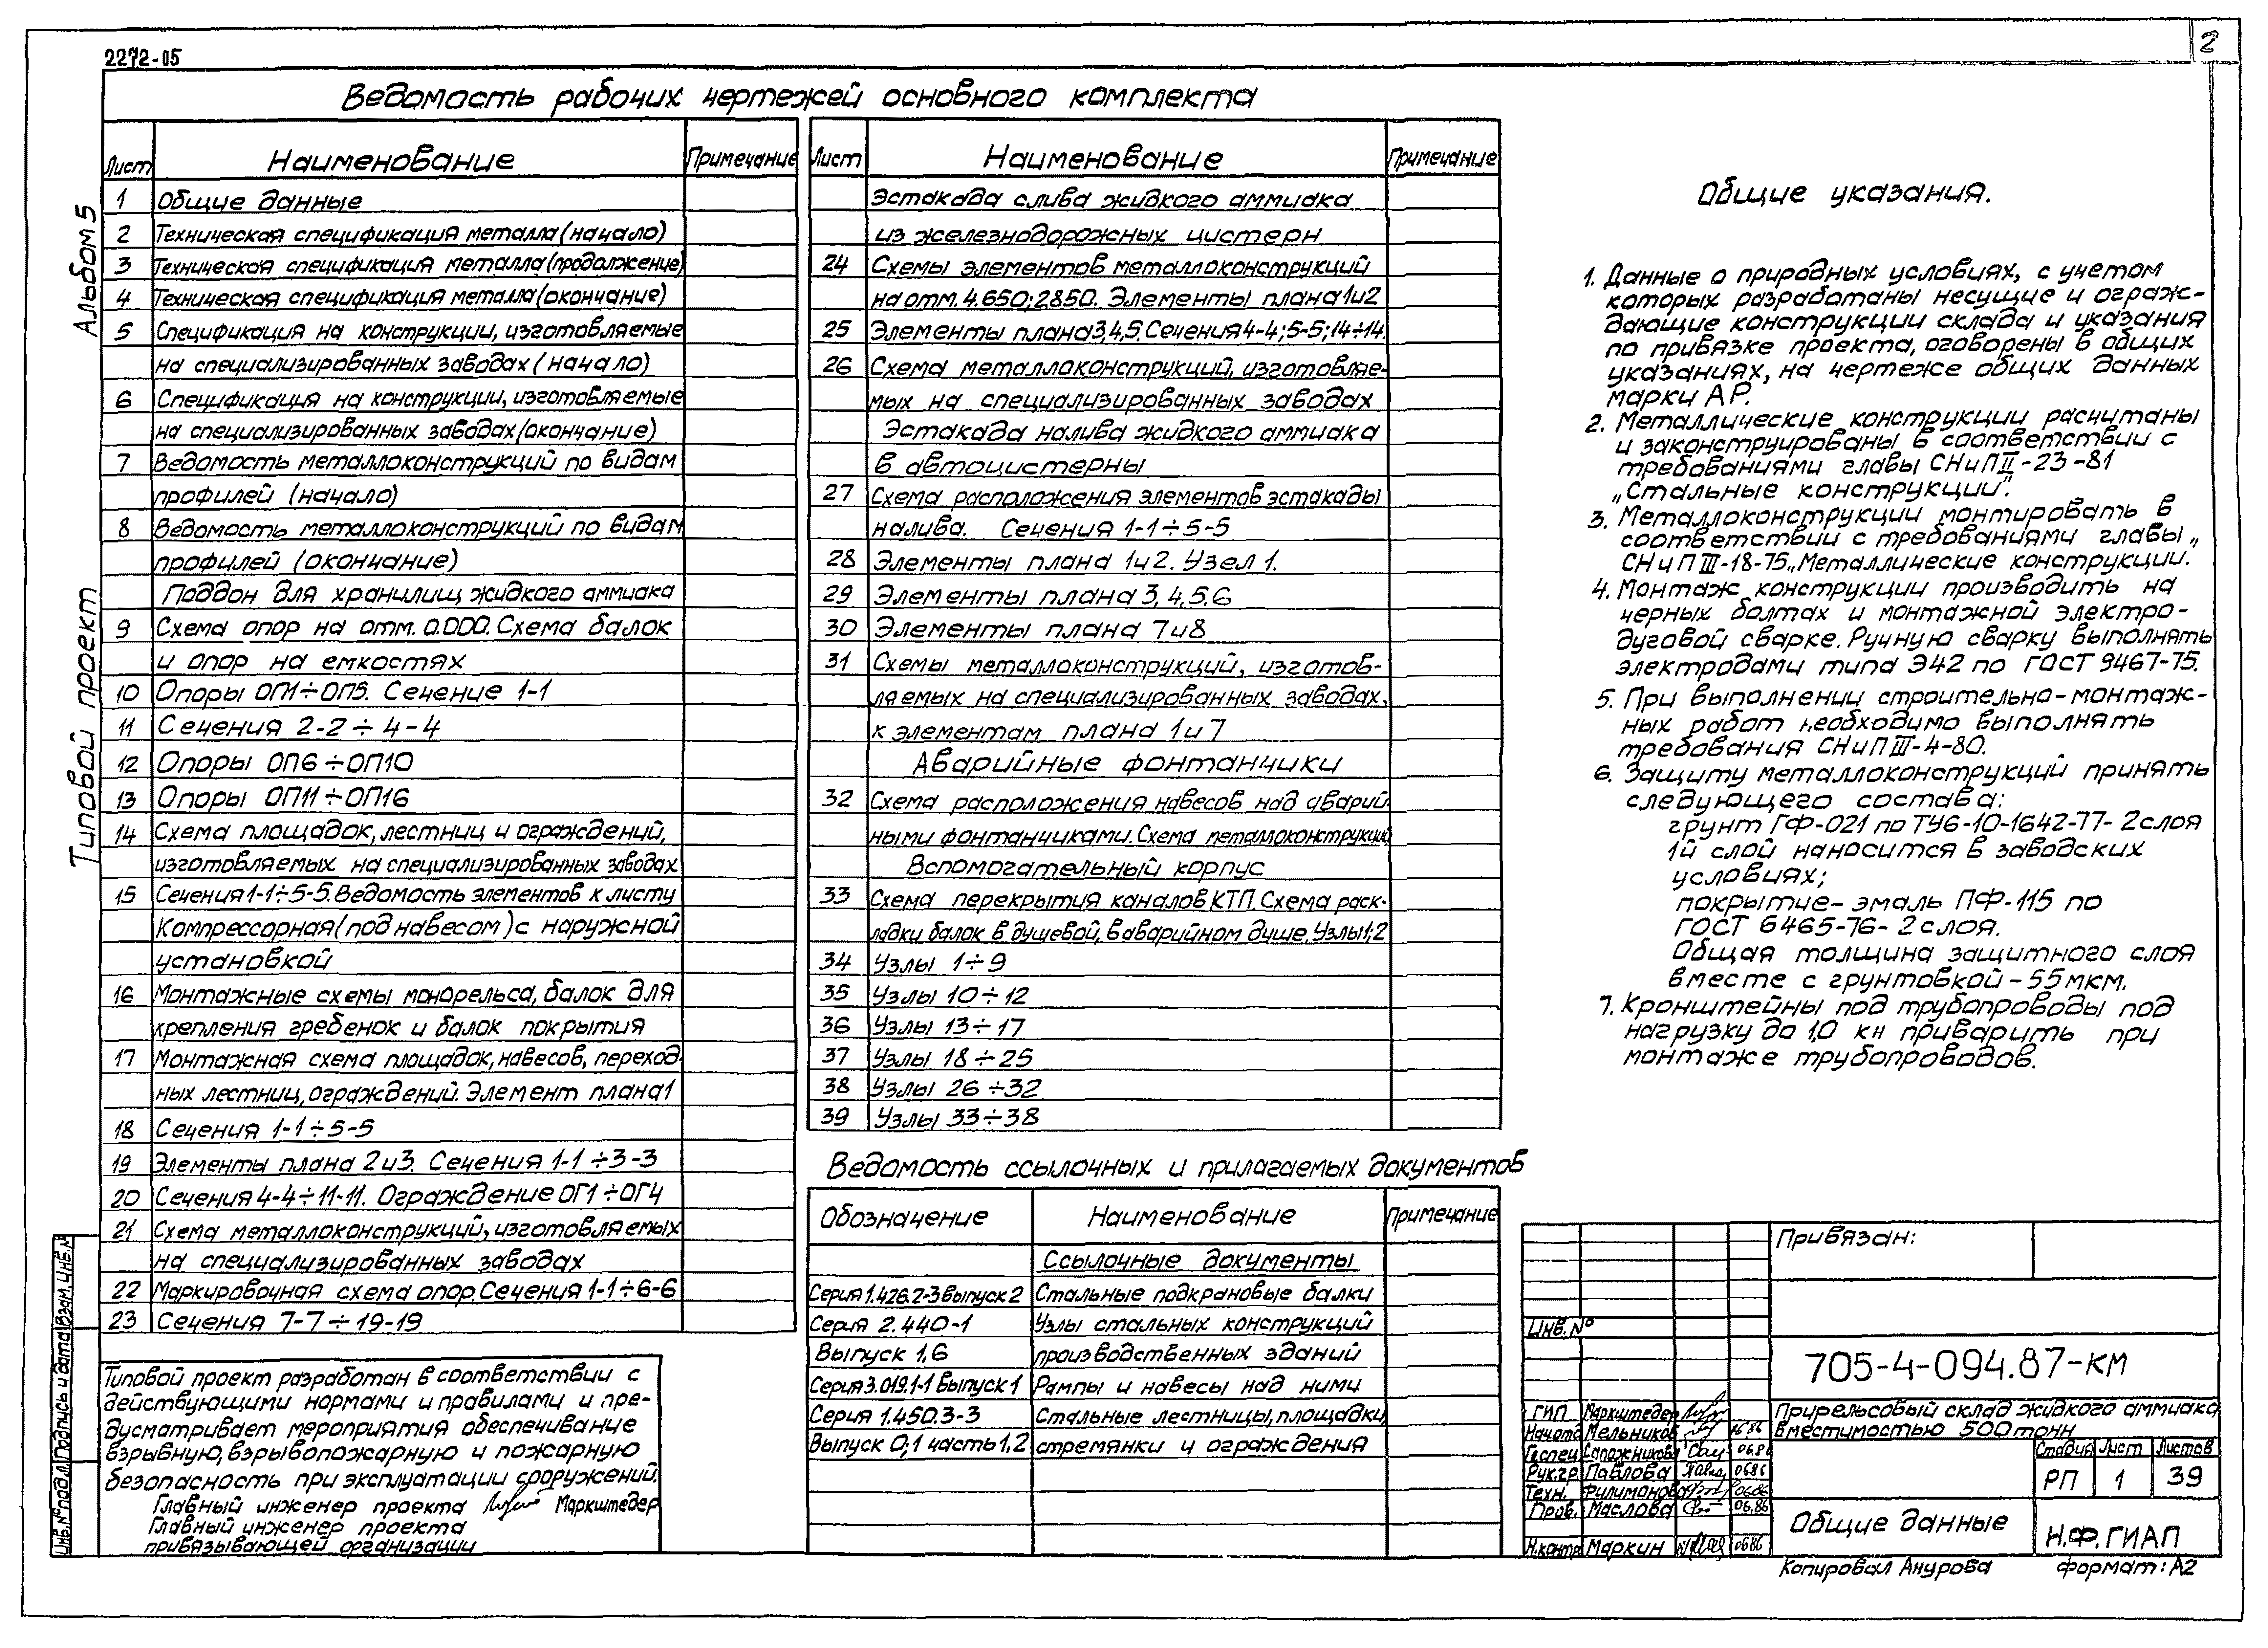 2
2272-05
Альбом 5
Типовой проект
Ведомость рабочих чертежей основного комплекта
Лист Наименование Примечание
1 Общие данные
2 Техническая спецификация металла (начало)
3 Техническая спецификация металла (продолжение)
4 Техническая спецификация металла (окончание)
5 Спецификация на конструкции, изготовляемые
на специализированных заводах (начало)
6 Спецификация на конструкции, изготовляемые
на специализированных заводах (окончание)
7 Ведомость металлоконструкций по видам
профилей (начало)
8 Ведомость металлоконструкций по видам
профилей (окончание)
Поддон для хранилищ жидкого аммиака
9 Схема опор на отм. 0.000. Схема балок
и опор на емкостях
10 Опоры ОП1÷ОП5. Сечение 1-1
11 Сечения 2-2÷4-4
12 Опоры ОП6÷ОП10
13 Опоры ОП11÷ОП16
14 Схема площадок, лестниц и ограждений,
изготовляемых на специализированных заводах
15 Сечения 1-1÷5-5. Ведомость элементов к листу
Компрессорная (под навесом) с наружной
установкой
16 Монтажные схемы монорельса, балок для
крепления гребенок и балок покрытия
17 Монтажная схема площадок, навесов, переход-
ных лестниц, ограждений. Элемент плана 1
18 Сечения 1-1÷5-5
19 Элементы плана 2и3. Сечения 1-1÷3-3
20 Сечения 4-4÷11-11. Ограждение ОГ1÷ОГ4
21 Схема металлоконструкций, изготовляемых
на специализированных заводах
22 Маркировочная схема опор. Сечения 1-1÷6-6
23 Сечения 7-7÷19-19
Лист Наименование Примечание
Эстакада слива жидкого аммиака
из железнодорожных цистерн
24 Схемы элементов металлоконструкций
на отм. 4.650; 2.850. Элементы плана 1и2
25 Элементы плана 3,4,5. Сечения 4-4; 5-5; 14÷14.
26 Схема металлоконструкций, изготовляе-
мых на специализированных заводах
Эстакада налива жидкого аммиака
в автоцистерны
27 Схема расположения элементов эстакады
налива. Сечения 1-1÷5-5
28 Элементы плана 1и2. Узел 1.
29 Элементы плана 3,4,5,6
30 Элементы плана 7и8
31 Схемы металлоконструкций, изготов-
ляемых на специализированных заводах,
к элементам плана 1и7
Аварийные фонтанчики
32 Схема расположения навесов над аварий-
ными фонтанчиками. Схема металлоконструкций
Вспомогательный корпус
33 Схема перекрытия каналов КТП. Схема раск-
ладки балок в душевой, в аварийном душе. Узлы 1;2
34 Узлы 1÷9
35 Узлы 10÷12
36 Узлы 13÷17
37 Узлы 18÷25
38 Узлы 26÷32
39 Узлы 33÷38
Ведомость ссылочных и прилагаемых документов
Обозначение Наименование Примечание
Ссылочные документы
Серия 1.426.2-3 выпуск 2 Стальные подкрановые балки
Серия 2.440-1 Узлы стальных конструкций
Выпуск 1,6 производственных зданий
Серия 3.019.1-1 Выпуск 1 Рампы и навесы над ними
Серия 1.450.3-3 Стальные лестницы, площадки,
Выпуск 0;1 часть 1,2 стремянки и ограждения
Общие указания.
1. Данные о природных условиях, с учетом
которых разработаны несущие и ограж-
дающие конструкции склада и указания
по привязке проекта, оговорены в общих
указаниях, на чертеже общих данных
марки АР.
2. Металлические конструкции расчитаны
и законструированы в соответствии с
требованиями главы СНиПII-23-81
„Стальные конструкции".
3. Металлоконструкции монтировать в
соответствии с требованиями главы „
СНиПIII-18-75„Металлические конструкции.
4. Монтаж конструкции производить на
черных болтах и монтажной электро-
дуговой сварке. Ручную сварку выполнять
электродами типа Э42 по ГОСТ 9467-75.
5. При выполнении строительно-монтаж-
ных работ необходимо выполнять
требования СНиПIII-4-80.
6. Защиту металлоконструкций принять
следующего состава:
грунт ГФ-021 по ТУ6-10-1642-77- 2слоя
1й слой наносится в заводских
условиях;
покрытие- эмаль ПФ-115 по
ГОСТ 6465-76- 2слоя.
Общая толщина защитного слоя
вместе с грунтовкой-55мкм.
7. Кронштейны под трубопроводы под
нагрузку до 1,0 кн приварить при
монтаже трубопроводов.
Типовой проект разработан в соответствии с
действующими нормами и правилами и пре-
дусматривает мероприятия обеспечивание
взрывную, взрывопожарную и пожарную
безопасность при эксплуатации сооружений.
Главный инженер проекта Маркштедер
Главный инженер проекта
привязывающей организации
Инв.№подл. Подпись и дата Взам.инв.№
Привязан:
Инв.№
705-4-094.87-КМ
ГИП Маркштедер
Нач.отд Мельников 06.86
Гл.спец Сапожникова 06.86
Рук.гр. Павлова 06.86
Техн. Филимонова 06.86
Пров. Маслова 06.86
Н.контр. Маркин 06.86
Прирельсовый склад жидкого аммиака
вместимостью 500тонн
Стадия Лист Листов
РП 1 39
Общие данные
Н.Ф.ГИАП
Копировал Анурова формат: А2